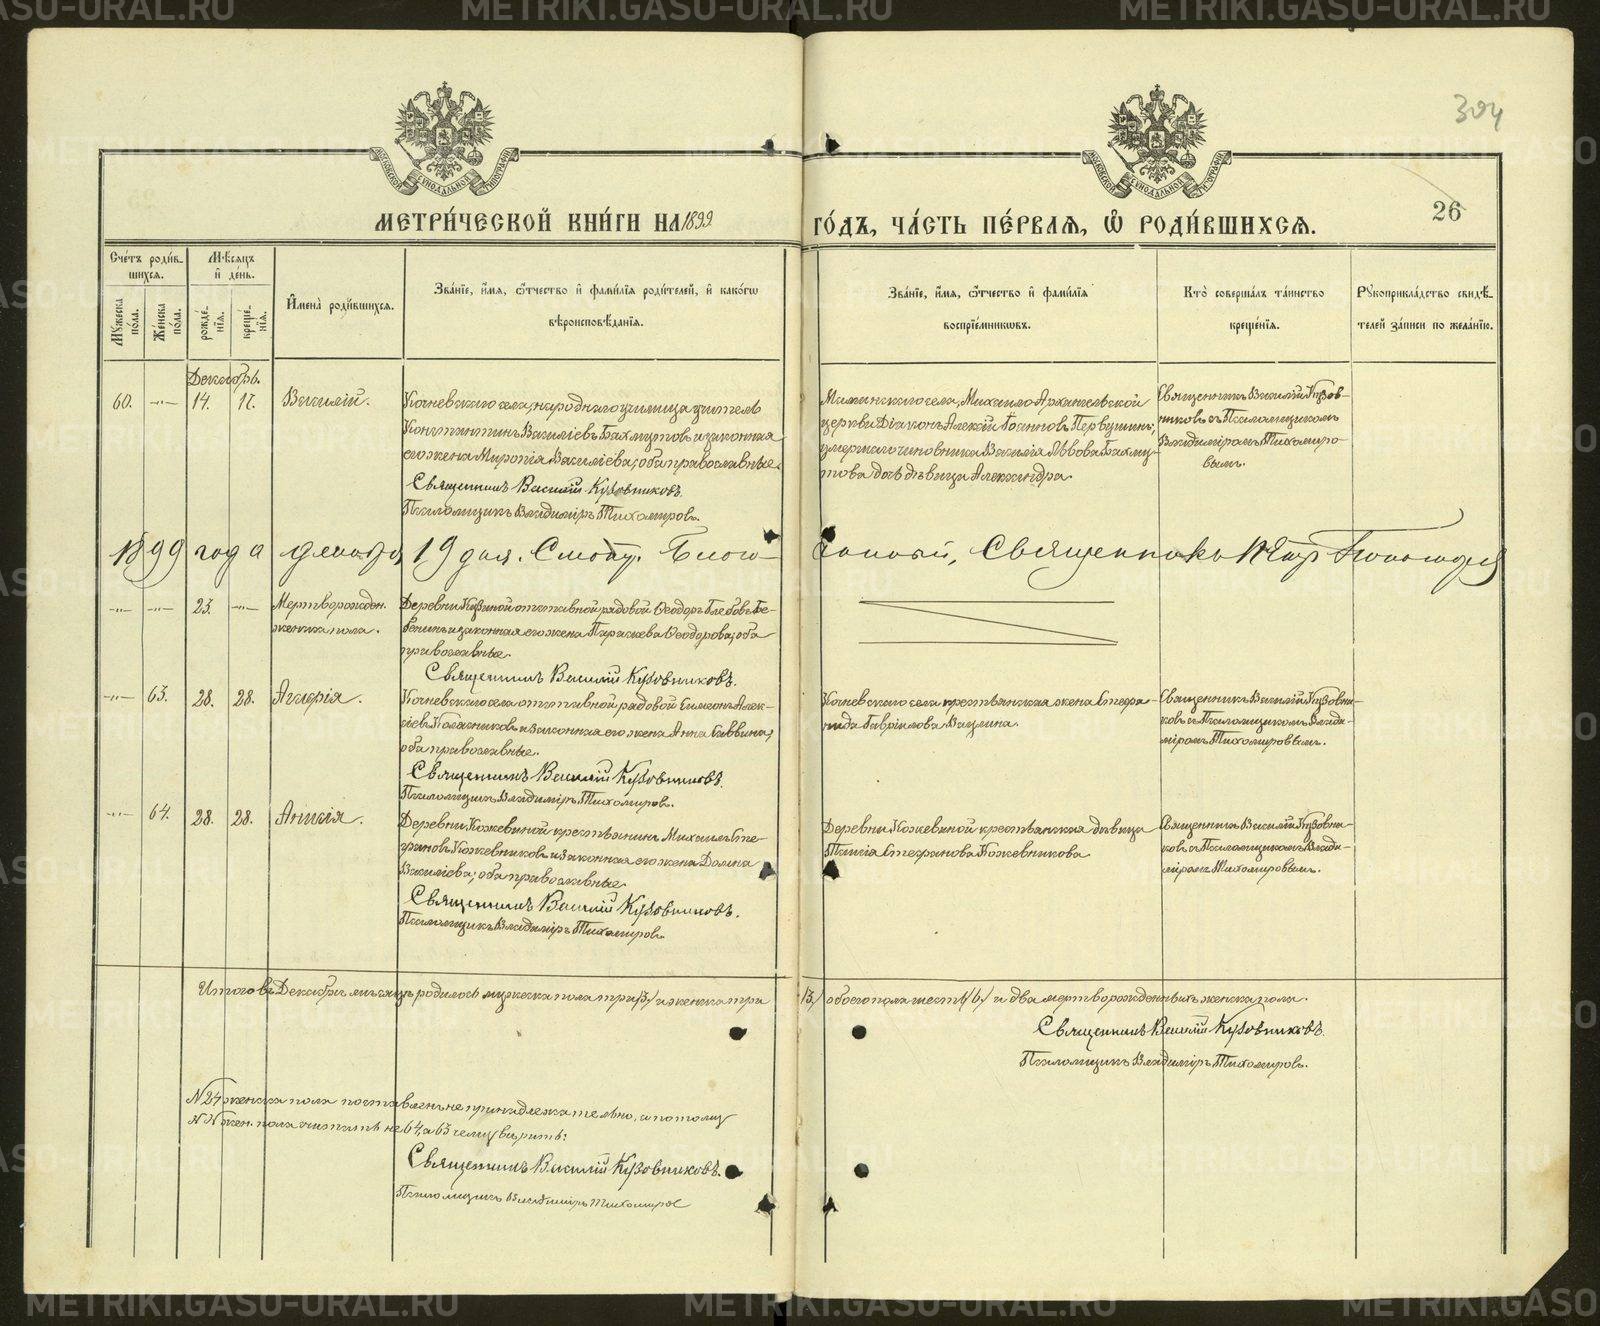 304
МОСКОВСКОЙ СѴНОДАЛЬНОЙ ТИПОГРАФІИ
МОСКОВСКОЙ СѴНОДАЛЬНОЙ ТИПОГРАФІИ
26
МЕТРИ́ЧЕСКОЙ КНИ́ГИ НА 1899 ГО́ДЪ, ЧА́СТЬ ПЕ́РВАЯ, Ѡ РОДИ́ВШИХСЯ.
Сче́тъ роди́в-
шихся.
Мꙋ́жеска по́ла.
Же́нска по́ла.
Мѣ́сяцъ и҆ де́нь.
рожде́-
нїя.
креще́-
нїя.
И҆мена̀ роди́вшихся.
Зва́нїе, и҆́мя, ѻ҆́тчество и҆ фами́лїя роди́телей, и҆ како́гѡ
вѣроисповѣ́данїя.
Зва́нїе, и҆́мя, ѻ҆́тчество и҆ фами́лїя
воспрїе́мникѡвъ.
Кто̀ соверша́лъ та́инство
креще́нїя.
Рꙋкоприкла́дство свидѣ́-
телей за́писи по жела́нїю.
Декабрь.
60. —„— 14. 17. Василій.
Кочневскаго села, народнаго училища учитель
Константинъ Василіевъ Бахмутовъ и законная
его жена Миропія Василіева; оба православные.
Священникъ Василій Кузовниковъ.
Псаломщикъ Владиміръ Тихомировъ.
Маминскаго села, Михаило-Архангельской
церкви Діаконъ Алексій Іоанновъ Первушинъ;
умершаго чиновника Василія Львова Бахму-
това дочь девица Александра.
Священникъ Василій Кузов-
никовъ съ Псаломщикомъ
Владиміромъ Тихомиро-
вымъ.
1899 года декабря 19 дня. Смотр. Благо-
чинный, Священникъ Петръ
—„— —„— 23. —„— Мертворожден.
женска пола.
Деревни отставной рядовой Ѳеодоръ Глебовъ Бе-
и законная его жена Параскева Ѳеодорова; оба
православные.
Священникъ Василій Кузовниковъ.
—„— 63. 28. 28. Аглерія.
Кочневскаго села отставной рядовой Симеонъ Алек-
сіевъ Колясниковъ и законная его жена Анна Саввина;
оба православные.
Священникъ Василій Кузовниковъ.
Псаломщикъ Владиміръ Тихомировъ.
Кочневскаго села крестьянская жена Стефа-
нида Гавріилова
Священникъ Василій Кузовни-
ковъ съ Псаломщикомъ Влади-
міромъ Тихомировымъ.
—„— 64. 28. 28. Анисія.
Деревни Кожевиной крестьянинъ Михаилъ Сте-
фановъ Кожевниковъ и законная его жена Домна
Василіева; оба православные.
Священникъ Василій Кузовниковъ.
Псаломщикъ Владиміръ Тихомировъ.
Деревни Кожевиной крестьянская девица
Таисія Стефанова Кожевникова
Священникъ Василій Кузовни-
ковъ съ Псаломщикомъ Влади-
міромъ Тихомировымъ.
Итого въ Декабрѣ мѣсяцѣ родилось мужеска пола три /3/ и женска три /3/ обоего пола шесть /6/ и два мертворожденныхъ женска пола.
Священникъ Василій Кузовниковъ.
Псаломщикъ Владиміръ Тихомировъ.
N 24 женска пола поставленъ не принадлежательно, а потому
N N жен. пола считать не 64, а 63 чему верить:
Священникъ Василій Кузовниковъ.
Псаломщикъ Владиміръ Тихомиров
METRIKI.GASO-URAL.RU